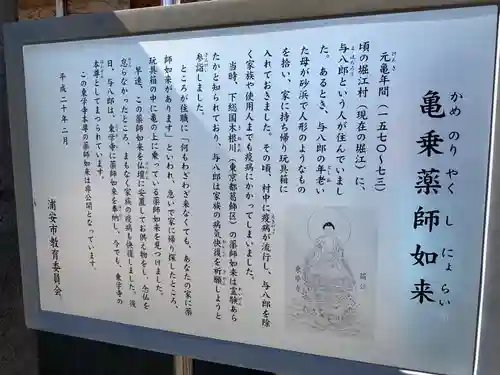 亀乗薬師如来
かめ のり やく し にょ らい
元亀年間(一五七〇〜七三)
げんき
頃の堀江村(現在の堀江)に、
与八郎という人が住んでいまし
よはちろう
た。あるとき、与八郎の年老い
た母が砂浜で人形のようなもの
を拾い、家に持ち帰り玩具箱に
入れておきました。その頃、村中に疫病が流行し、与八郎を除
く家族や使用人までも疫病にかかってしまいました。
当時、下総国木根川(東京都葛飾区)の薬師如来は霊験あら
たかと知られており、与八郎は家族の病気快復を祈願しようと
参詣しました。
さんけい
ところが住職に「何もわざわざ来なくても、あなたの家に薬
師如来があります」といわれ、急いで家に帰り探したところ、
玩具箱の中に亀の上に乗っている薬師如来を見つけました。
早速、この薬師如来を仏壇に安置してお供え物をし、念仏を
怠らなかったところ、まもなく家族の疫病も快復しました。後
日、与八郎は、東学寺に薬師如来を奉納し、今でも、東学寺の
本尊としてまつられています。
この東学寺本尊の薬師如来は非公開となっています。
平成二十年二月
浦安市教育委員会
堀江
東学寺